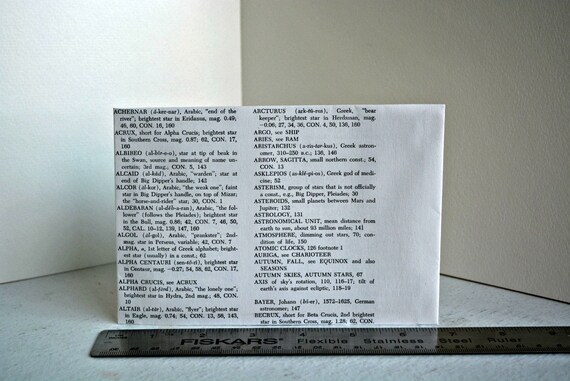 ACHERNAR (á-ker-nar), Arabic, "end of the
river"; brightest star in Eridanus, mag. 0.49;
46, 60, CON. 16, 160
ACRUX, short for Alpha Crucis; brightest star
in Southern Cross, mag. 0.87; 62, CON. 17,
160
ALBIREO (al-bír-e-o), star at tip of beak in
the Swan, source and meaning of name un-
certain; 3rd mag.; CON. 5, 143
ALCAID (al-káid), Arabic, "warden"; star at
end of Big Dipper's handle; 142
ALCOR (ál-kor), Arabic, "the weak one"; faint
star in Big Dipper's handle, on top of Mizar;
the "horse-and-rider" star; 30, CON. 1
ALDEBARAN (al-déb-a-ran), Arabic, "the fol-
lower" (follows the Pleiades); brightest star
in the Bull, mag. 0.86; 42, CON. 7, 46, 50,
52, CAL. 10–12, 139, 147, 160
ALGOL (ál-gol), Arabic, "prankster"; 2nd-
mag. star in Perseus, variable; 42, CON. 7
ALPHA, α, 1st letter of Greek alphabet; bright-
est star (usually) in a const.; 62
ALPHA CENTAURI (sen-tó-ri), brightest star
in Centaur, mag. –0.27; 54, 58, 62, CON. 17,
160
ALPHA CRUCIS, see ACRUX
ALPHARD (ál-fard), Arabic, "the lonely one";
brightest star in Hydra, 2nd mag.; 48, CON.
10
ALTAIR (al-tár), Arabic, "flyer"; brightest star
in Eagle, mag. 0.74; 34, CON. 13, 36, 143,
160
ARCTURUS (ark-tú-rus), Greek, "bear
keeper"; brightest star in Herdsman, mag.
–0.06; 27, 34, 36, CON. 4, 50, 136, 160
ARGO, see SHIP
ARIES, see RAM
ARISTARCHUS (a-ris-tár-kus), Greek astron-
omer, 310–250 B.C.; 136, 146
ARROW, SAGITTA, small northern const.; 54,
CON. 13
ASKLEPIOS (as-klé-pi-os), Greek god of medi-
cine; 52
ASTERISM, group of stars that is not officially
a const., e.g., Big Dipper, Pleiades; 30
ASTEROIDS, small planets between Mars and
Jupiter; 132
ASTROLOGY, 131
ASTRONOMICAL UNIT, mean distance from
earth to sun, about 93 million miles; 141
ATMOSPHERE, dimming out stars, 70; con-
dition of life, 150
ATOMIC CLOCKS, 126 footnote 1
AURIGA, see CHARIOTEER
AUTUMN, FALL, see EQUINOX and also
SEASONS
AUTUMN SKIES, AUTUMN STARS, 67
AXIS of sky's rotation, 110, 116–17, tilt of
earth's axis against ecliptic, 118–19
BAYER, Johann (bí-er), 1572–1625, German
astronomer; 147
BECRUX, short for Beta Crucis, 2nd brightest
star in Southern Cross, mag. 1.28; 62, CON.
FISKARS Flexible Stainless Steel Ruler